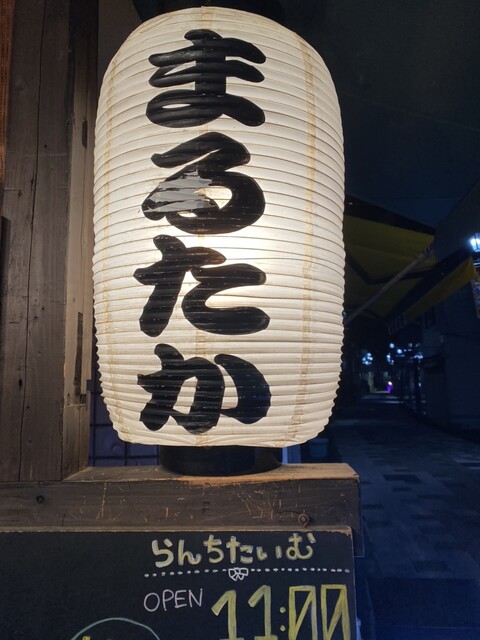 まるたか
らんちたいむ
OPEN 11:00